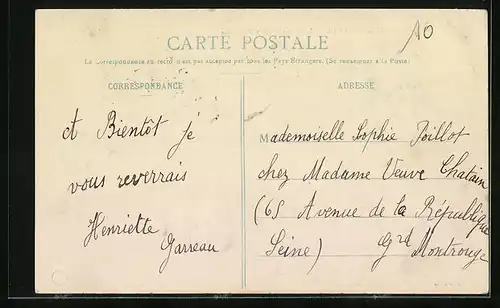 10
CARTE POSTALE
La Correspondance au recto n'est pas acceptée par tous les Pays Étrangers. (Se renseigner à la Poste)
CORRESPONDANCE
ADRESSE
et Bientôt je
vous reverrais
Henriette
Garreau
Mademoiselle Sophie Poillot
chez Madame Veuve Chatain
(65 Avenue de la République
Seine) Grd Montrouge